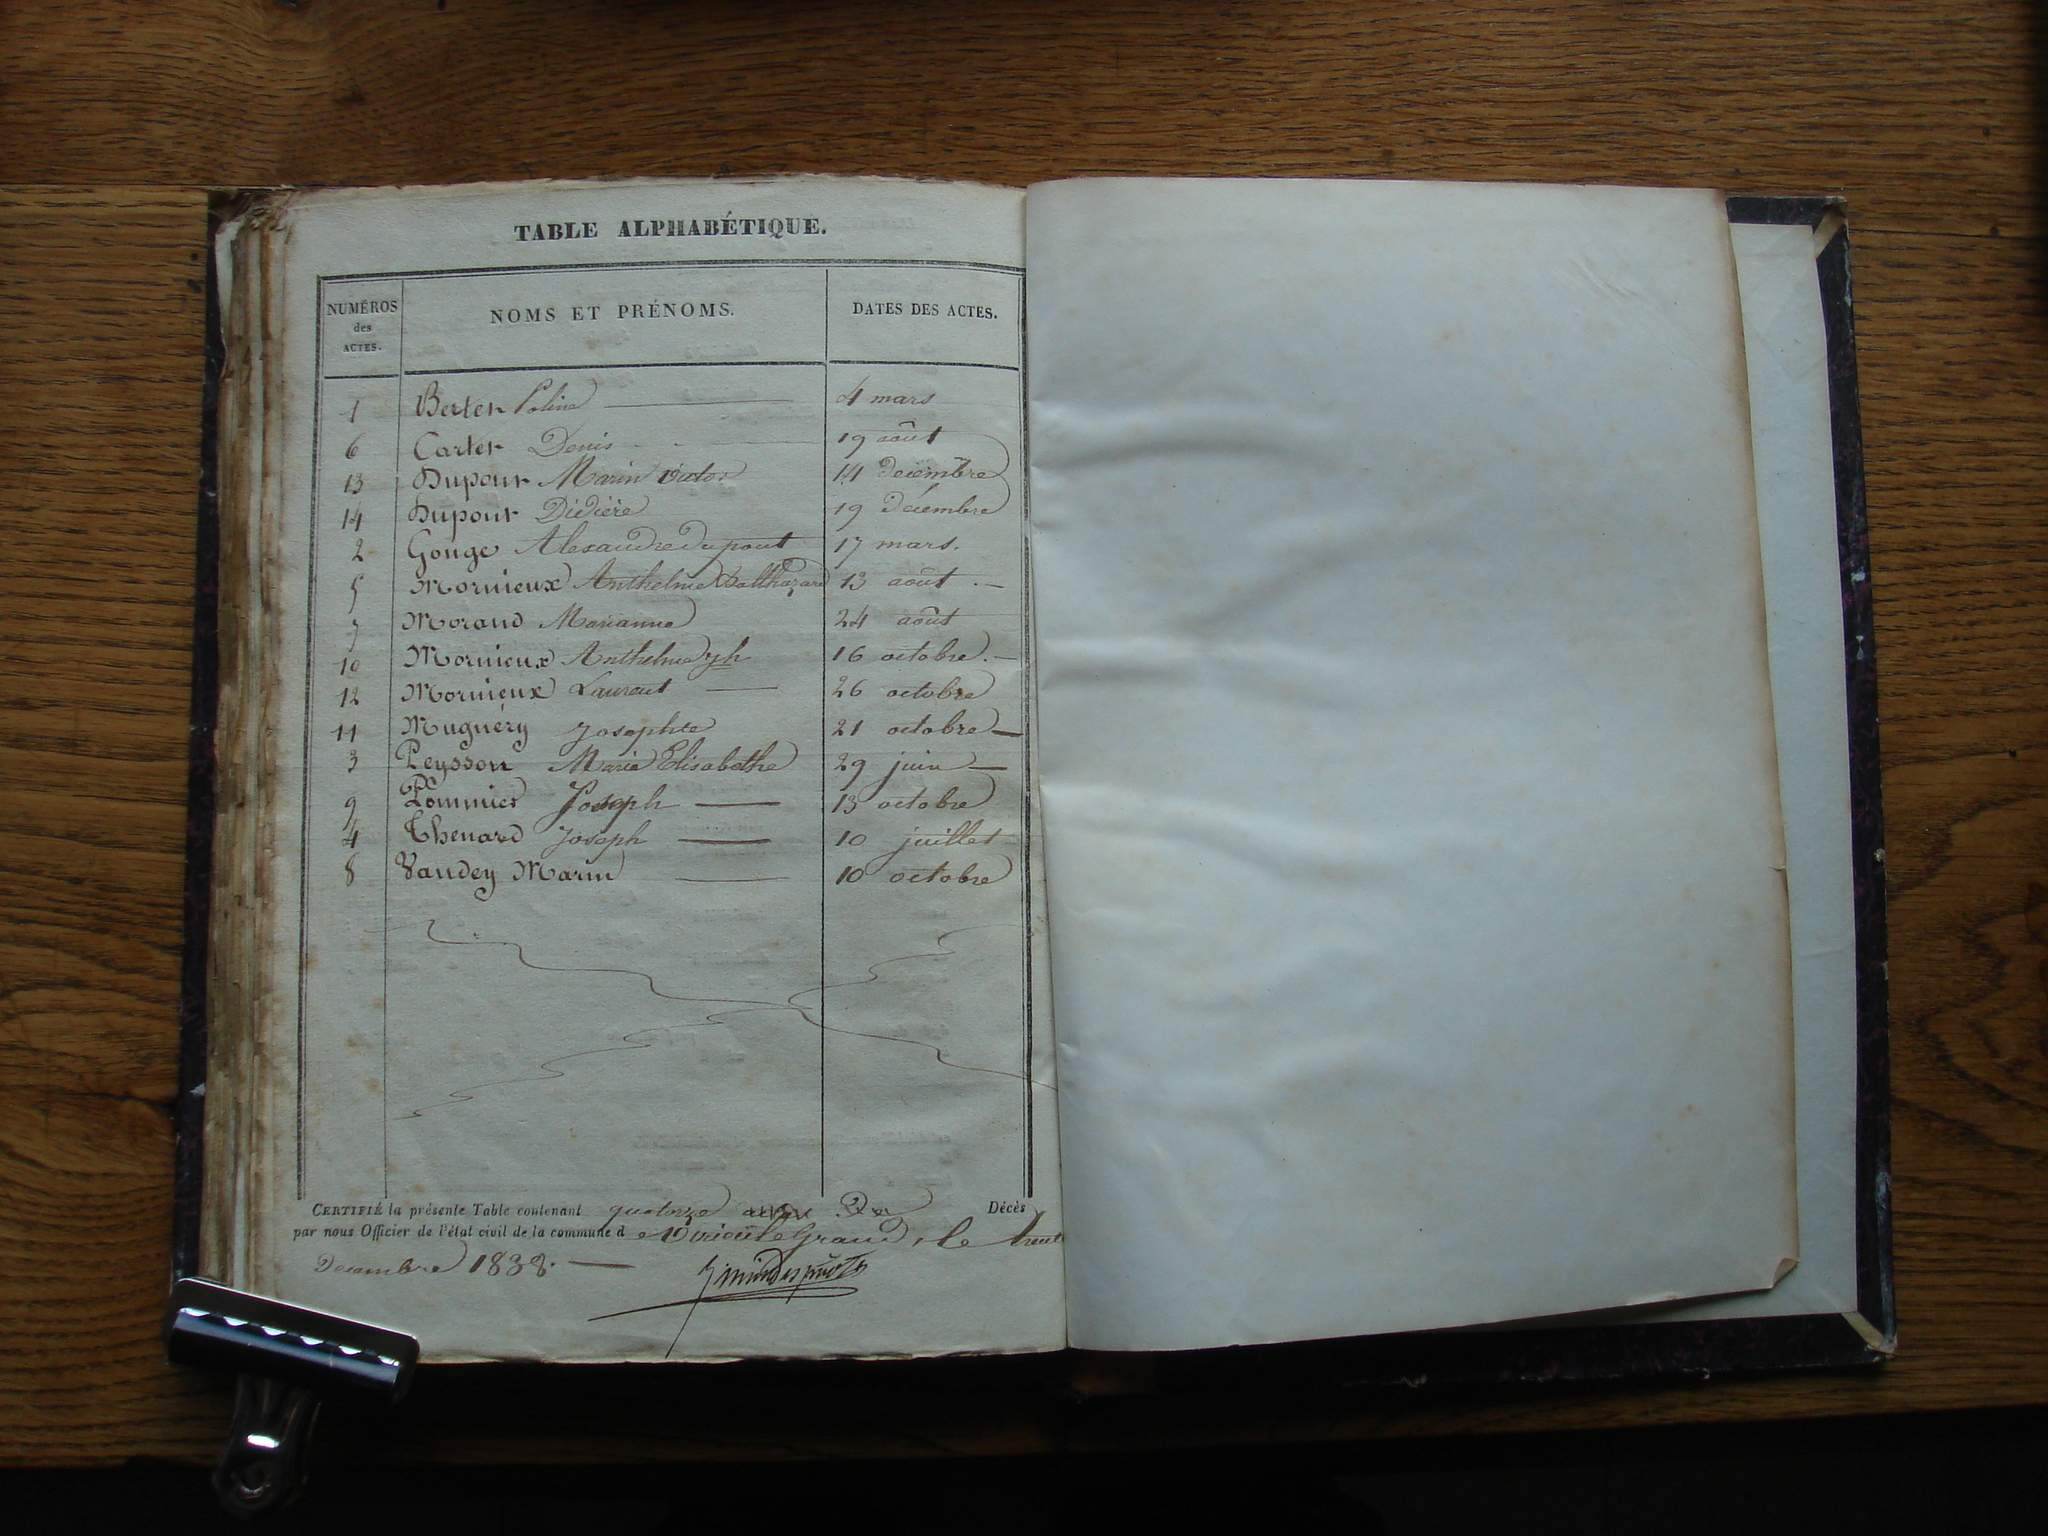 TABLE ALPHABÉTIQUE.
NUMÉROS des ACTES. NOMS ET PRÉNOMS. DATES DES ACTES.
1 Berter Poline 4 mars
6 Carter Denis 19 août
13 Dupont Marin Victor 14 décembre
14 Dupont Didière 19 décembre
2 Gouge Alexandre dupont 17 mars.
5 Mornieux Anthelme Balthazard 13 août
7 Morand Marianne 24 août
10 Mornieux Anthelme jh 16 octobre.
12 Mornieux Laurent 26 octobre
11 Muguéry Josephte 21 octobre
3 Peysson Marie Elisabethe 29 juin
9 Pommier Joseph 13 octobre
4 Thenard Joseph 10 juillet
8 Vaudey Marin 10 octobre
CERTIFIÉ la présente Table contenant quatorze actes De Décès
par nous Officier de l'état civil de la commune de Virieu le Grand, le trent
Decembre 1838.